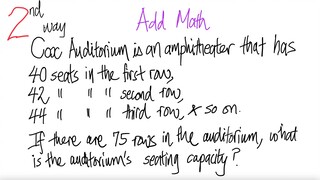 2nd way Add Math
Coox Auditorium is an amphitheater that has
40 seats in the first row,
42 " " " second row,
44 " " " third row, & so on.
If there are 75 rows in the auditorium, what
is the auditorium's seating capacity?